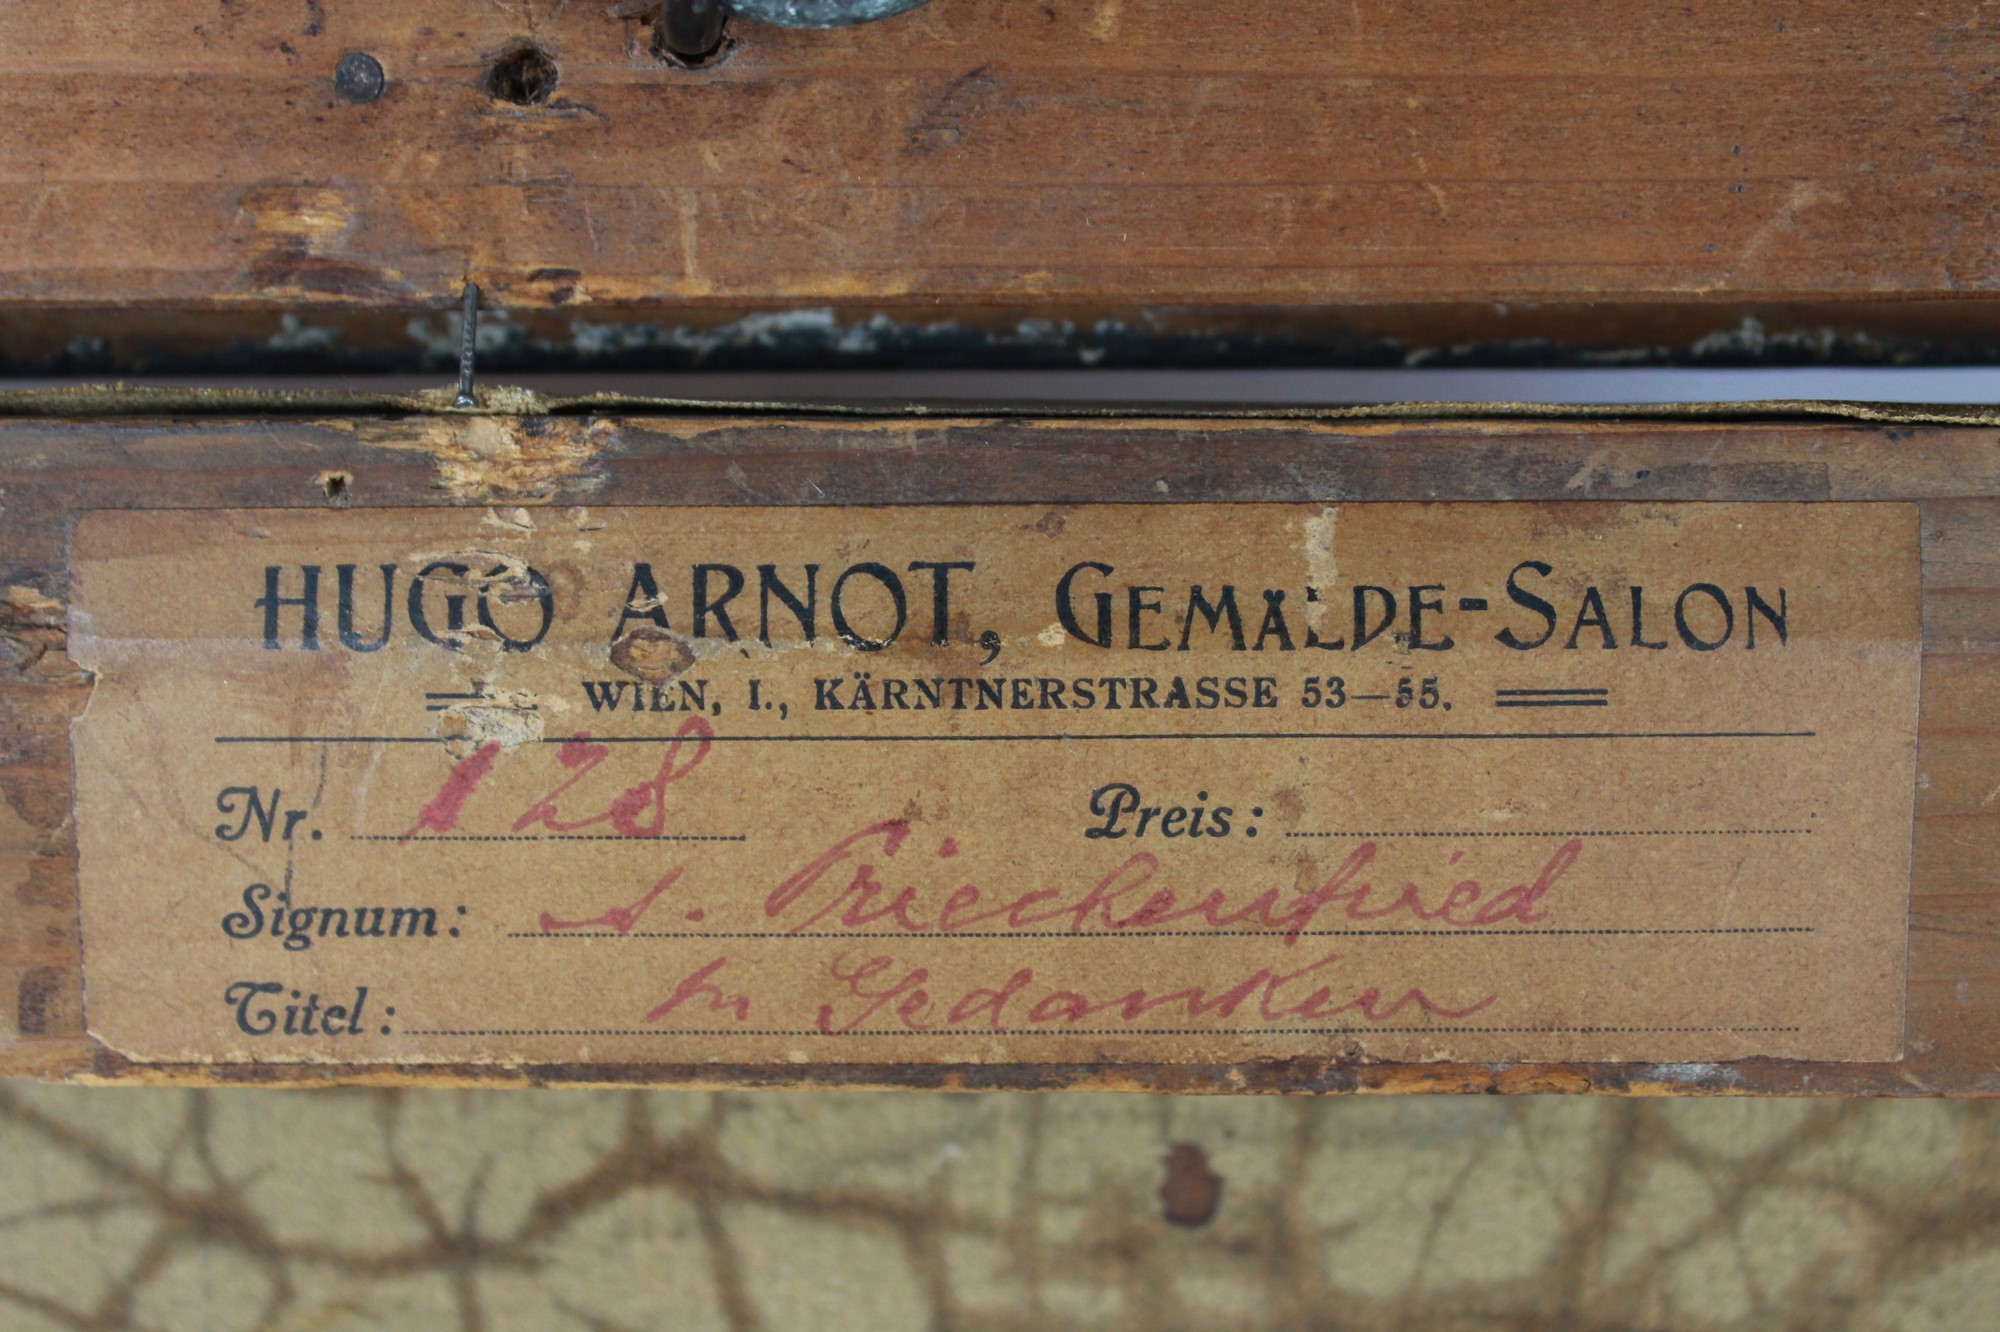 HUGO ARNOT, GEMÄLDE-SALON
WIEN, I., KÄRNTNERSTRASSE 53—55.
Nr. 128 Preis:
Signum: A. Prieckenfried
Titel: In Gedanken